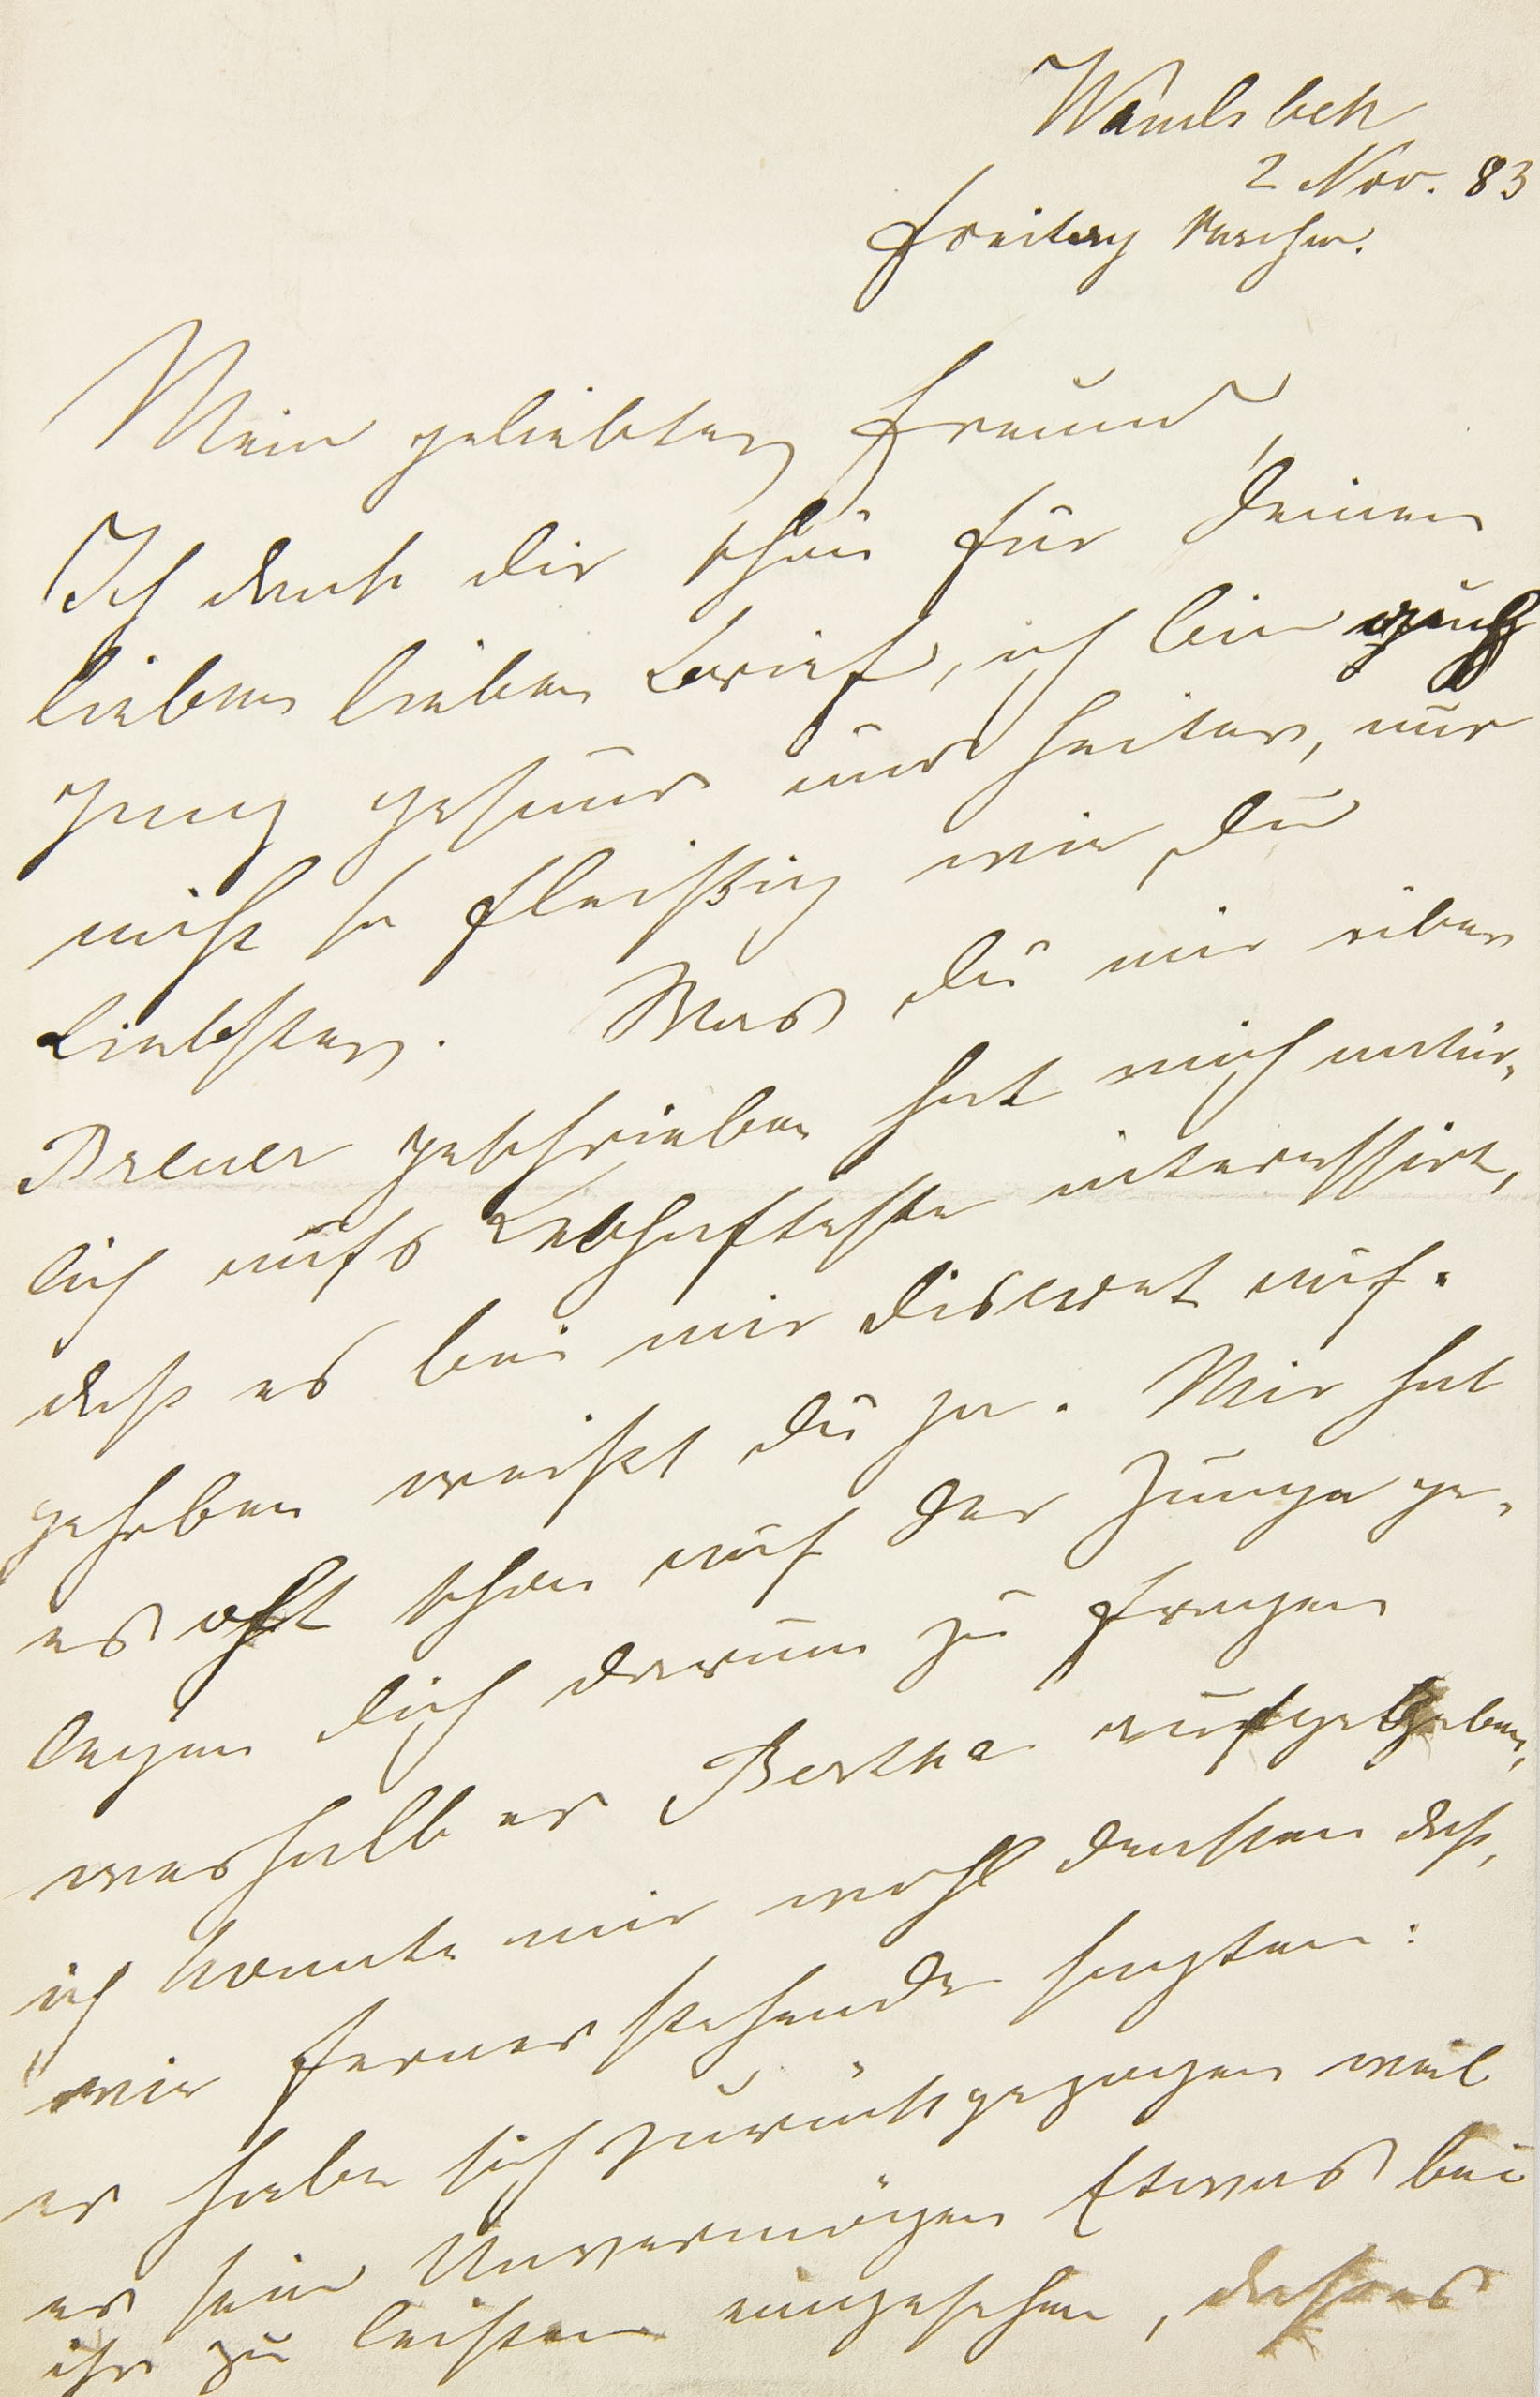 Wandsbek
2 Nov. 83
Freitag Nachm.
Mein geliebter Freund,
Ich dank dir schön für Deinen
lieben lieben Brief, ich bin
ganz gesund und heiter, nur
nicht so fleißig wie Du
Liebster. Was Du mir über
Breuer geschrieben hat mich natür-
lich aufs Lebhafteste interessirt,
daß es bei mir discret auf-
gehoben weißt Du ja. Mir hat
es oft schon auf der Zunge ge-
legen Dich darum zu fragen
weshalb er Bertha aufgegeben,
ich konnte mir wohl denken daß,
wie fernerstehende sagten:
er habe sich zurückgezogen weil
er sein Unvermögen Etwas bei
ihr zu leisten eingesehen, daß es